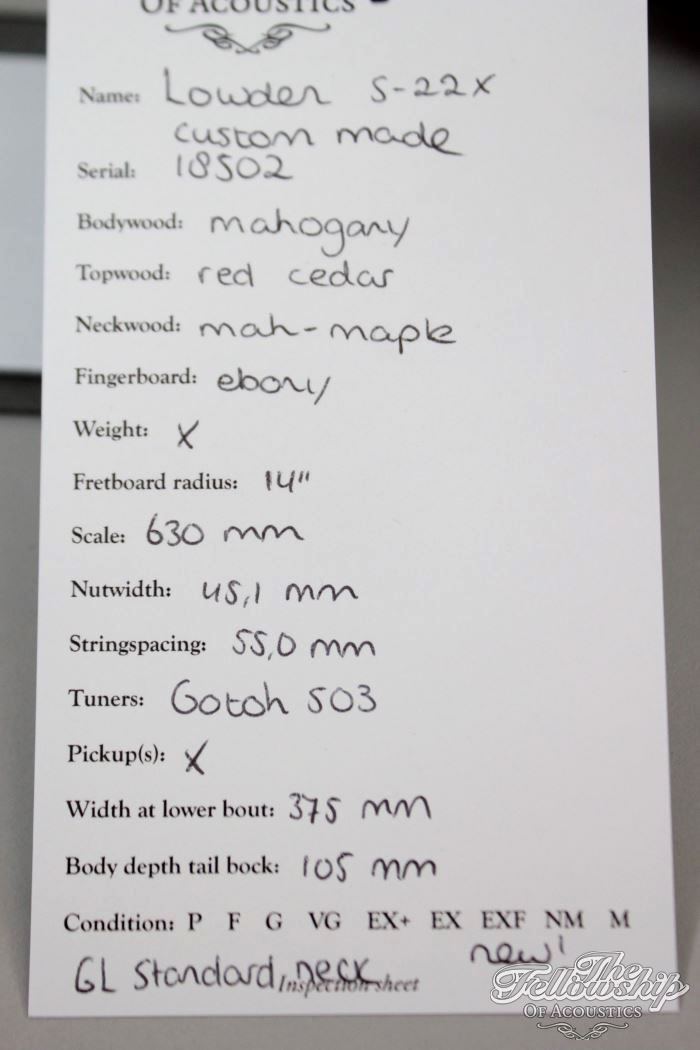 OF ACOUSTICS
Name: Lowden S-22X
custom made
Serial: 18502
Bodywood: mahogany
Topwood: red cedar
Neckwood: mah-maple
Fingerboard: ebony
Weight: X
Fretboard radius: 14"
Scale: 630 mm
Nutwidth: 45,1 mm
Stringspacing: 55,0 mm
Tuners: Gotoh 503
Pickup(s): X
Width at lower bout: 375 mm
Body depth tail bock: 105 mm
Condition: P F G VG EX+ EX EXF NM M
new!
GL Standard neck
Inspection sheet
The
Fellowship
OF ACOUSTICS